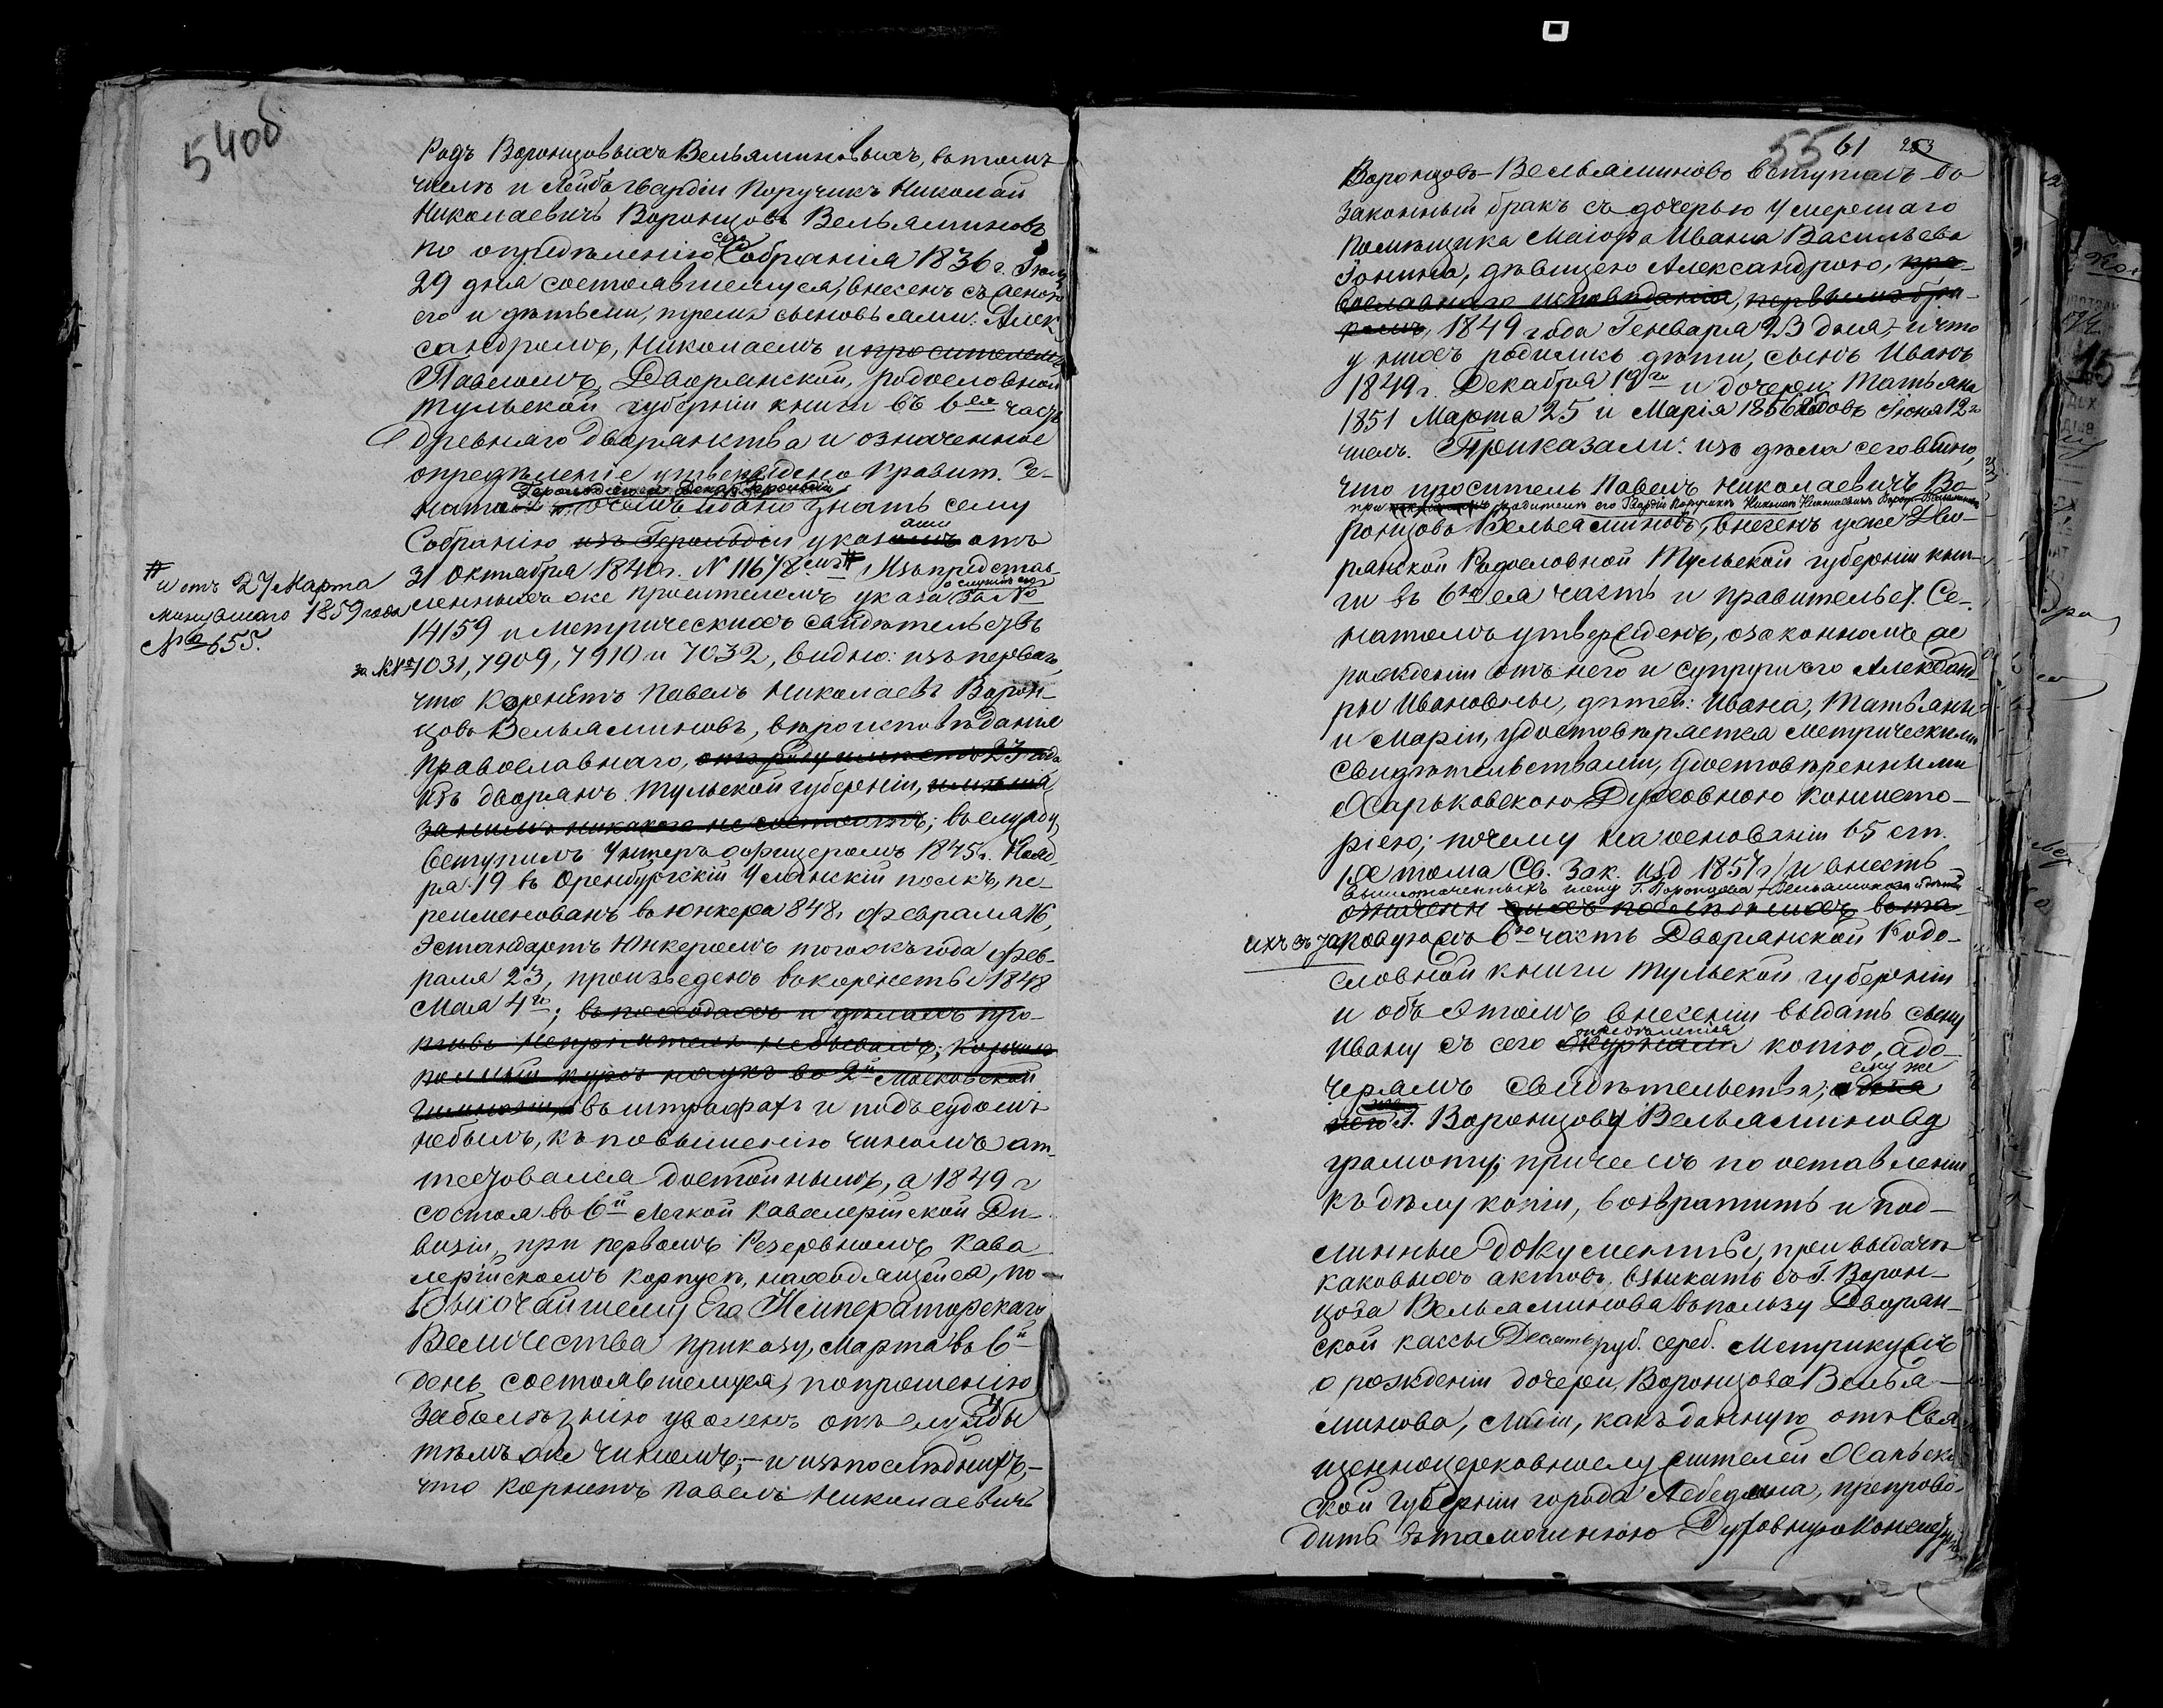 54об
Родъ Воронцовыхъ Вельяминовыхъ, въ томъ
числѣ и Лейбъ гвардіи Поручикъ Николай
Николаевичъ Воронцовъ Вельяминовъ
по опредѣленію сего Собранія 1836 г. Іюля
29 дня состоявшемуся, внесенъ съ женою
его и дѣтьми, тремя сыновьями: Алек
сандромъ, Николаемъ и просителемъ
Павломъ, Дворянской родословной
Тульской губерніи книги въ 6ую часть
древняго дворянства и означенное
опредѣленіе утверждено Правит. Се-
натомъ о чемъ и дано знать сему
Собранію изъ Герольдіи указами отъ
31 Октября 1840 г. N 11678 # Изъ представ-
# и отъ 27 Марта
минувшаго 1859 года
№ 2655.
ленныхъ же просителемъ указа о службѣ его за №
14159 и Метрическихъ свидѣтельствъ
за №№ 7031, 7909, 7910 и 7032, видно: изъ перваго,
что Корнетъ Павелъ Николаевъ Ворон-
цовъ Вельяминовъ, вѣроисповѣданія
православнаго, отъ роду имѣетъ 23 года
изъ дворянъ Тульской губерніи, имѣнія
за нимъ никакого не состоитъ; въ службу
вступилъ Унтеръ офицеромъ 1845 г. Нояб-
ря 19 въ Оренбургскій Уланскій полкъ, пе-
реименованъ въ юнкера 848 г. февраля 16,
Эстандартъ Юнкеромъ того жъ года фев-
раля 23, произведенъ въ корнеты 1848
Мая 4го; въ походахъ и дѣлахъ про-
тивъ непріятеля не бывалъ; кончилъ
полный курсъ наукъ во 2й Московской
гимназіи, въ штрафахъ и подъ судомъ
небылъ, къ повышенію чиномъ ат-
тестовался достойнымъ, а 1849 г
состоя въ 6й Легкой Кавалерійской Ди-
визіи, при первомъ Резервномъ Кава-
лерійскомъ корпусѣ, находящейся, по
Высочайшему Его Императорскаго
Величества приказу, Марта въ 6й
день состоявшемуся, по прошенію
за болѣзнію уволенъ отъ службы
тѣмъ же чиномъ; – и изъ послѣднихъ, –
что Корнетъ Павелъ Николаевичъ
55 61 253
Воронцовъ-Вельяминовъ вступилъ во
законный бракъ съ дочерью умершаго
помѣщика Маіора Ивана Васильева
дѣвицею Александрою, пра-
вославнаго исповѣданія, первымъ бра-
комъ, 1849 года Генваря 23 дня, – и что
у нихъ родились дѣти, сынъ Иванъ
1849 г. Декабря 19го и дочери: Татьяна
1851 Марта 25 и Марія 1856 годовъ Іюня 12го
числ. Приказали: изъ дѣла сего видно,
что проситель Павелъ Николаевичъ Во-
при родителѣ его Гвардіи Поручикѣ Николаѣ Николаевичѣ Ворон. Вельяминовѣ
ронцовъ Вельяминовъ, внесенъ уже Дво-
рянской Родословной Тульской губерніи кни-
ги въ 6ую часть и правительст. Се-
натомъ утвержденъ, о законномъ же
рожденіи отъ него и супруги его Александ-
ры Ивановны, дѣтей: Ивана, Татьяны
и Маріи, удостовѣряется Метрическими
свидѣтельствами, удостовѣренными
Харьковскою Духовною Консисто-
ріею; почему на основаніи 65 ст.
IX тома Св. Зак. изд 1857 г. и внесть
дѣтей
ихъ въ таковую жъ 6ую часть Дворянской Родо-
словной книги Тульской губерніи
и объ этомъ внесеніи выдать сыну
Ивану съ сего опредѣленія копію, а до-
черямъ свидѣтельства, ему же
Г. Воронцову Вельяминову
грамоту; причемъ по оставленіи
къ дѣлу копіи, возвратить и под-
линные документы, при выдачѣ
каковыхъ актовъ, взыскать съ Г. Ворон-
цова Вельяминова въ пользу Дворян-
ской кассы Десять руб. сереб. Метрику жъ
о рожденіи дочери, Воронцова Велья-
минова, какъ данную отъ Свя-
щенноцерковнослужителей Харьков-
ской Губерніи города Лебедяна, препрово-
дить въ тамошнюю Духовную Консисторію